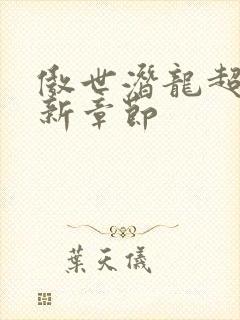 傲世潛龍超
新章節
葉天儀